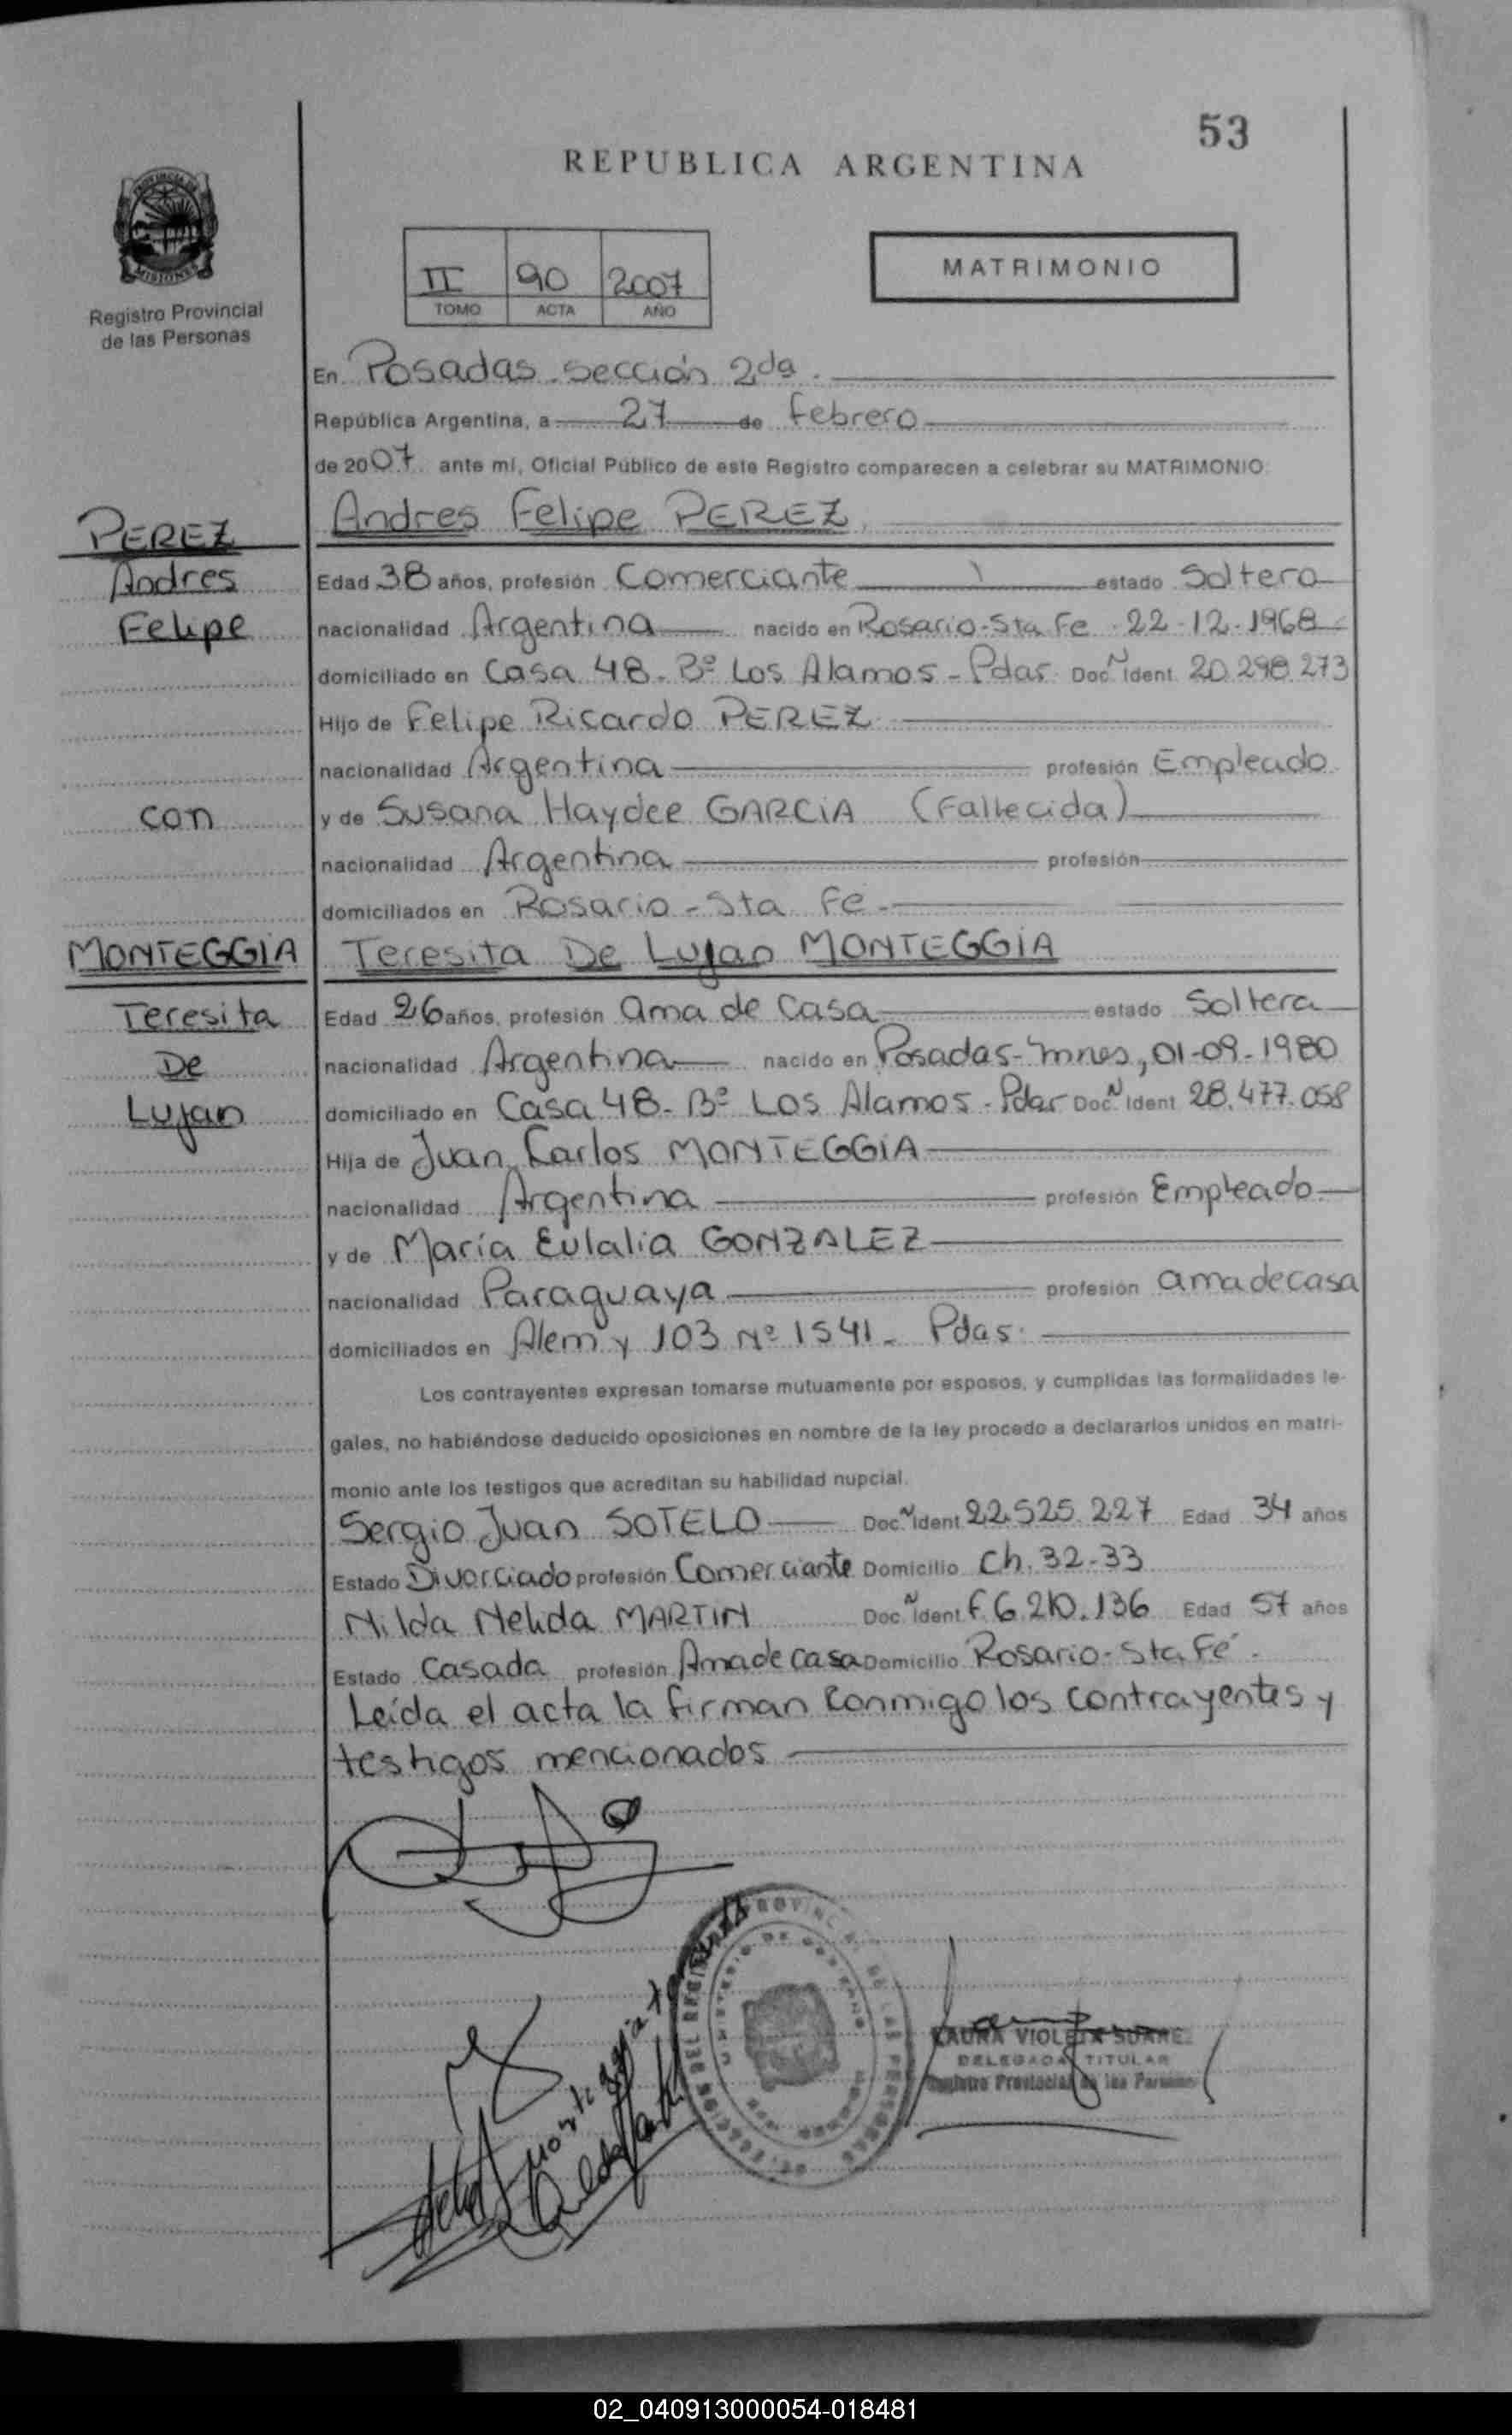 53
REPUBLICA ARGENTINA
PROVINCIA DE
MISIONES
Registro Provincial
de las Personas
II 90 2007
TOMO ACTA AÑO
MATRIMONIO
En Posadas. Sección 2da.
República Argentina, a 27 de febrero
de 2007 ante mí, Oficial Público de este Registro comparecen a celebrar su MATRIMONIO:
PEREZ
Andres
Felipe
con
MONTEGGIA
Teresita
De
Lujan
Andres Felipe PEREZ
Edad 38 años, profesión Comerciante estado Soltero
nacionalidad Argentina nacido en Rosario-Sta Fe 22-12-1968
domiciliado en Casa 48. Bº Los Alamos - Pdas. Doc. N Ident. 20.298.273
Hijo de Felipe Ricardo PEREZ
nacionalidad Argentina profesión Empleado
y de Susana Haydee GARCIA (Fallecida)
nacionalidad Argentina profesión
domiciliados en Rosario - Sta Fe -
Teresita De Lujan MONTEGGIA
Edad 26 años, profesión ama de casa estado Soltera
nacionalidad Argentina nacido en Posadas-Mnes, 01-09-1980
domiciliado en Casa 48. Bº Los Alamos - Pdas Doc. N Ident. 28.477.058
Hija de Juan Carlos MONTEGGIA
nacionalidad Argentina profesión Empleado
y de María Eulalia GONZALEZ
nacionalidad Paraguaya profesión ama de casa
domiciliados en Alem y 103 Nº 1541 - Pdas.
Los contrayentes expresan tomarse mutuamente por esposos, y cumplidas las formalidades le-
gales, no habiéndose deducido oposiciones en nombre de la ley procedo a declararlos unidos en matri-
monio ante los testigos que acreditan su habilidad nupcial.
Sergio Juan SOTELO Doc. N Ident. 22.525.227 Edad 34 años
Estado Divorciado profesión Comerciante Domicilio Ch. 32-33
Nilda Nelida MARTIN Doc. N Ident. F. 6.210.136 Edad 57 años
Estado Casada profesión Ama de casa Domicilio Rosario-Sta Fé.
Leída el acta la firman conmigo los contrayentes y
testigos mencionados
LAURA VIOLETA SUAREZ
DELEGADA TITULAR
Registro Provincial de las Personas
02_040913000054-018481